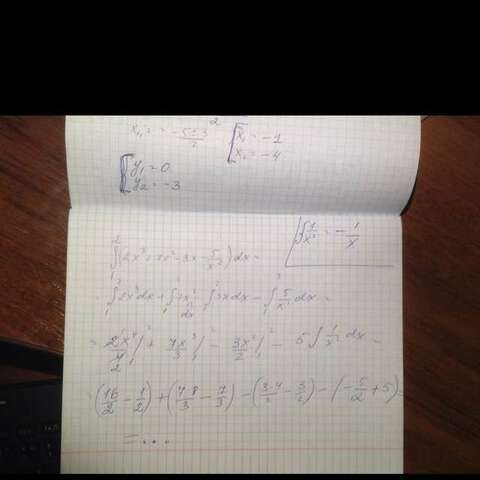 x₁,₂ = (-5±3)/2 [x₁ = -1
x₂ = -4
{y₁ = 0
y₂ = -3
∫1/x² = -1/x
∫₁²(2x³+7x²-3x-5/x²)dx =
= ∫₁²2x³dx + ∫₁²7x²dx - ∫₁²3xdx - ∫₁²5/x²dx =
= 2x⁴/4|₁² + 7x³/3|₁² - 3x²/2|₁² - 5∫1/x²dx =
= (16/2 - 1/2) + (7·8/3 - 7/3) - (3·4/2 - 3/2) - (-5/2 + 5) =
= ...